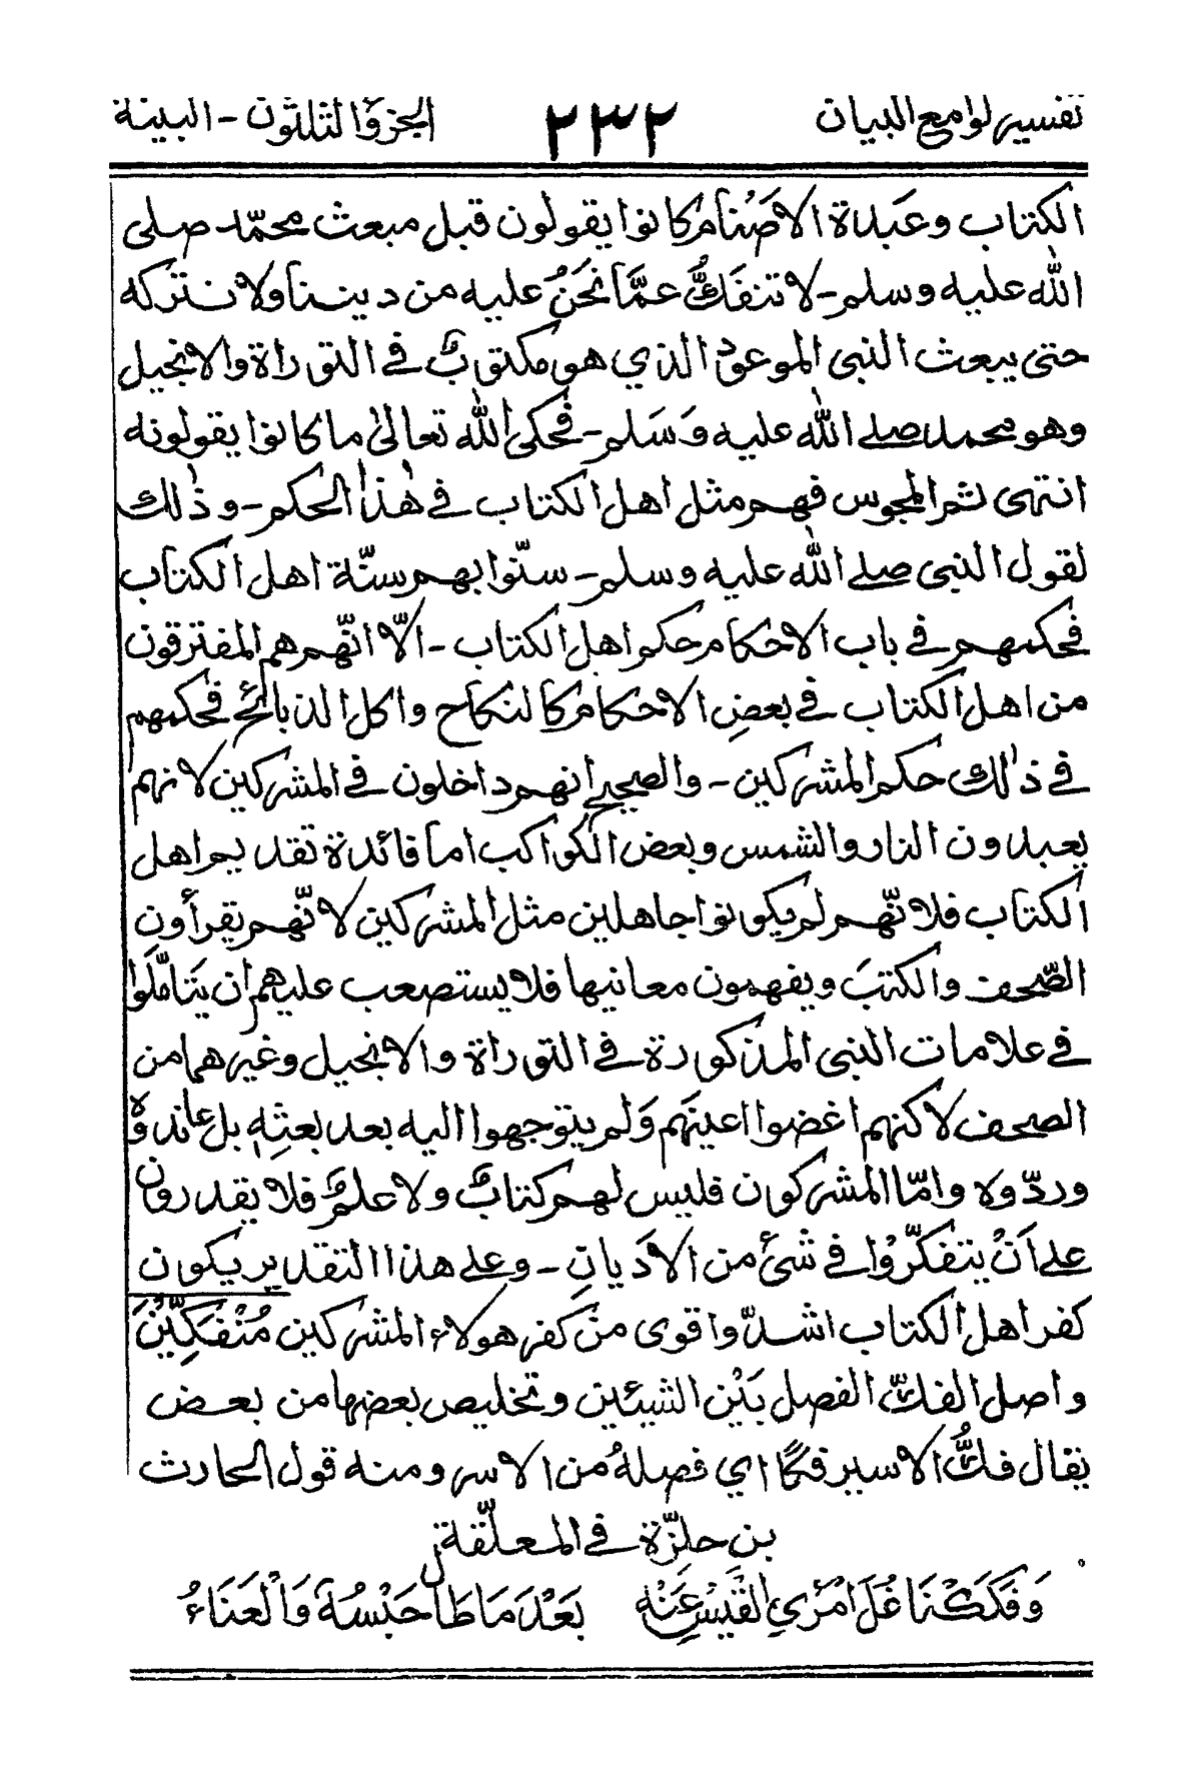 تفسير لوامع البيان ٢٣٢ الجزؤ الثلثون - البينة
الكتاب وعَبدة الاصْنام كانوا يقولون قبل مبعث محمّد صلى
الله عليه وسلم - لا تنفكُّ عمَّا نَحنُ عليه من ديننا ولا نتركه
حتى يبعث النبي الموعود الذي هو مكتوبٌ في التوراة والانجيل
وهو محمد صلے الله عليه وَسَلم - فحكى الله تعالىٰ ما كانوا يقولونه
انتهى ثم المجوس فهم مثل اهل الكتاب في هٰذا الحكم - وذٰلك
لقول النبي صلے الله عليه وسلم - سنّوا بهم سنّة اهل الكتاب
فحكمهم في باب الاحكام حكم اهل الكتاب - الّا انّهم هم المفترقون
من اهل الكتاب في بعضِ الاحكام كالنكاح واكل الذبائح فحكمهم
في ذٰلك حكم المشركين - والصحيح انهم داخلون في المشركين لانهم
يعبدون النار والشمس وبعض الكواكب اما فائدة تقديم اهل
الكتاب فلانّهم لم يكونوا جاهلين مثل المشركين لانّهم يقرأون
الصّحف والكتبَ ويفهمون معانيها فلا يستصعب عليهم ان يتَاملّوا
في علامات النبي المذكورة في التوراة والانجيل وغيرهما من
الصحف لاكنهم اغضوا اعينَهم وَلم يتوجهوا اليه بعد بعثِهٖ بل عاندوه
وردّوه وامّا المشركون فليس لهم كتابٌ ولا علمٌ فلا يقدرون
علے اَنْ يتفكّروْا في شئ من الاَديانِ - وعلے هذا التقدير يكون
كفر اهل الكتاب اشدّ واقوى من كفر هولاء المشركين مُنْفَكِّيْنَ
واصل الفكّ الفصل بَيْن الشيئين وتخليص بعضها من بعض
يقال فكُّ الاسير فكًا اي فصلهُ من الاسر ومنه قول الحارث
بن حلِزّة في المعلّقة
وَفَكَكْنَا غُلَّ امْرَيِ القَيْسِ عَنْهُ بَعْدَ مَا طَالَ حَبْسُهُ وَالْعَنَاءُ